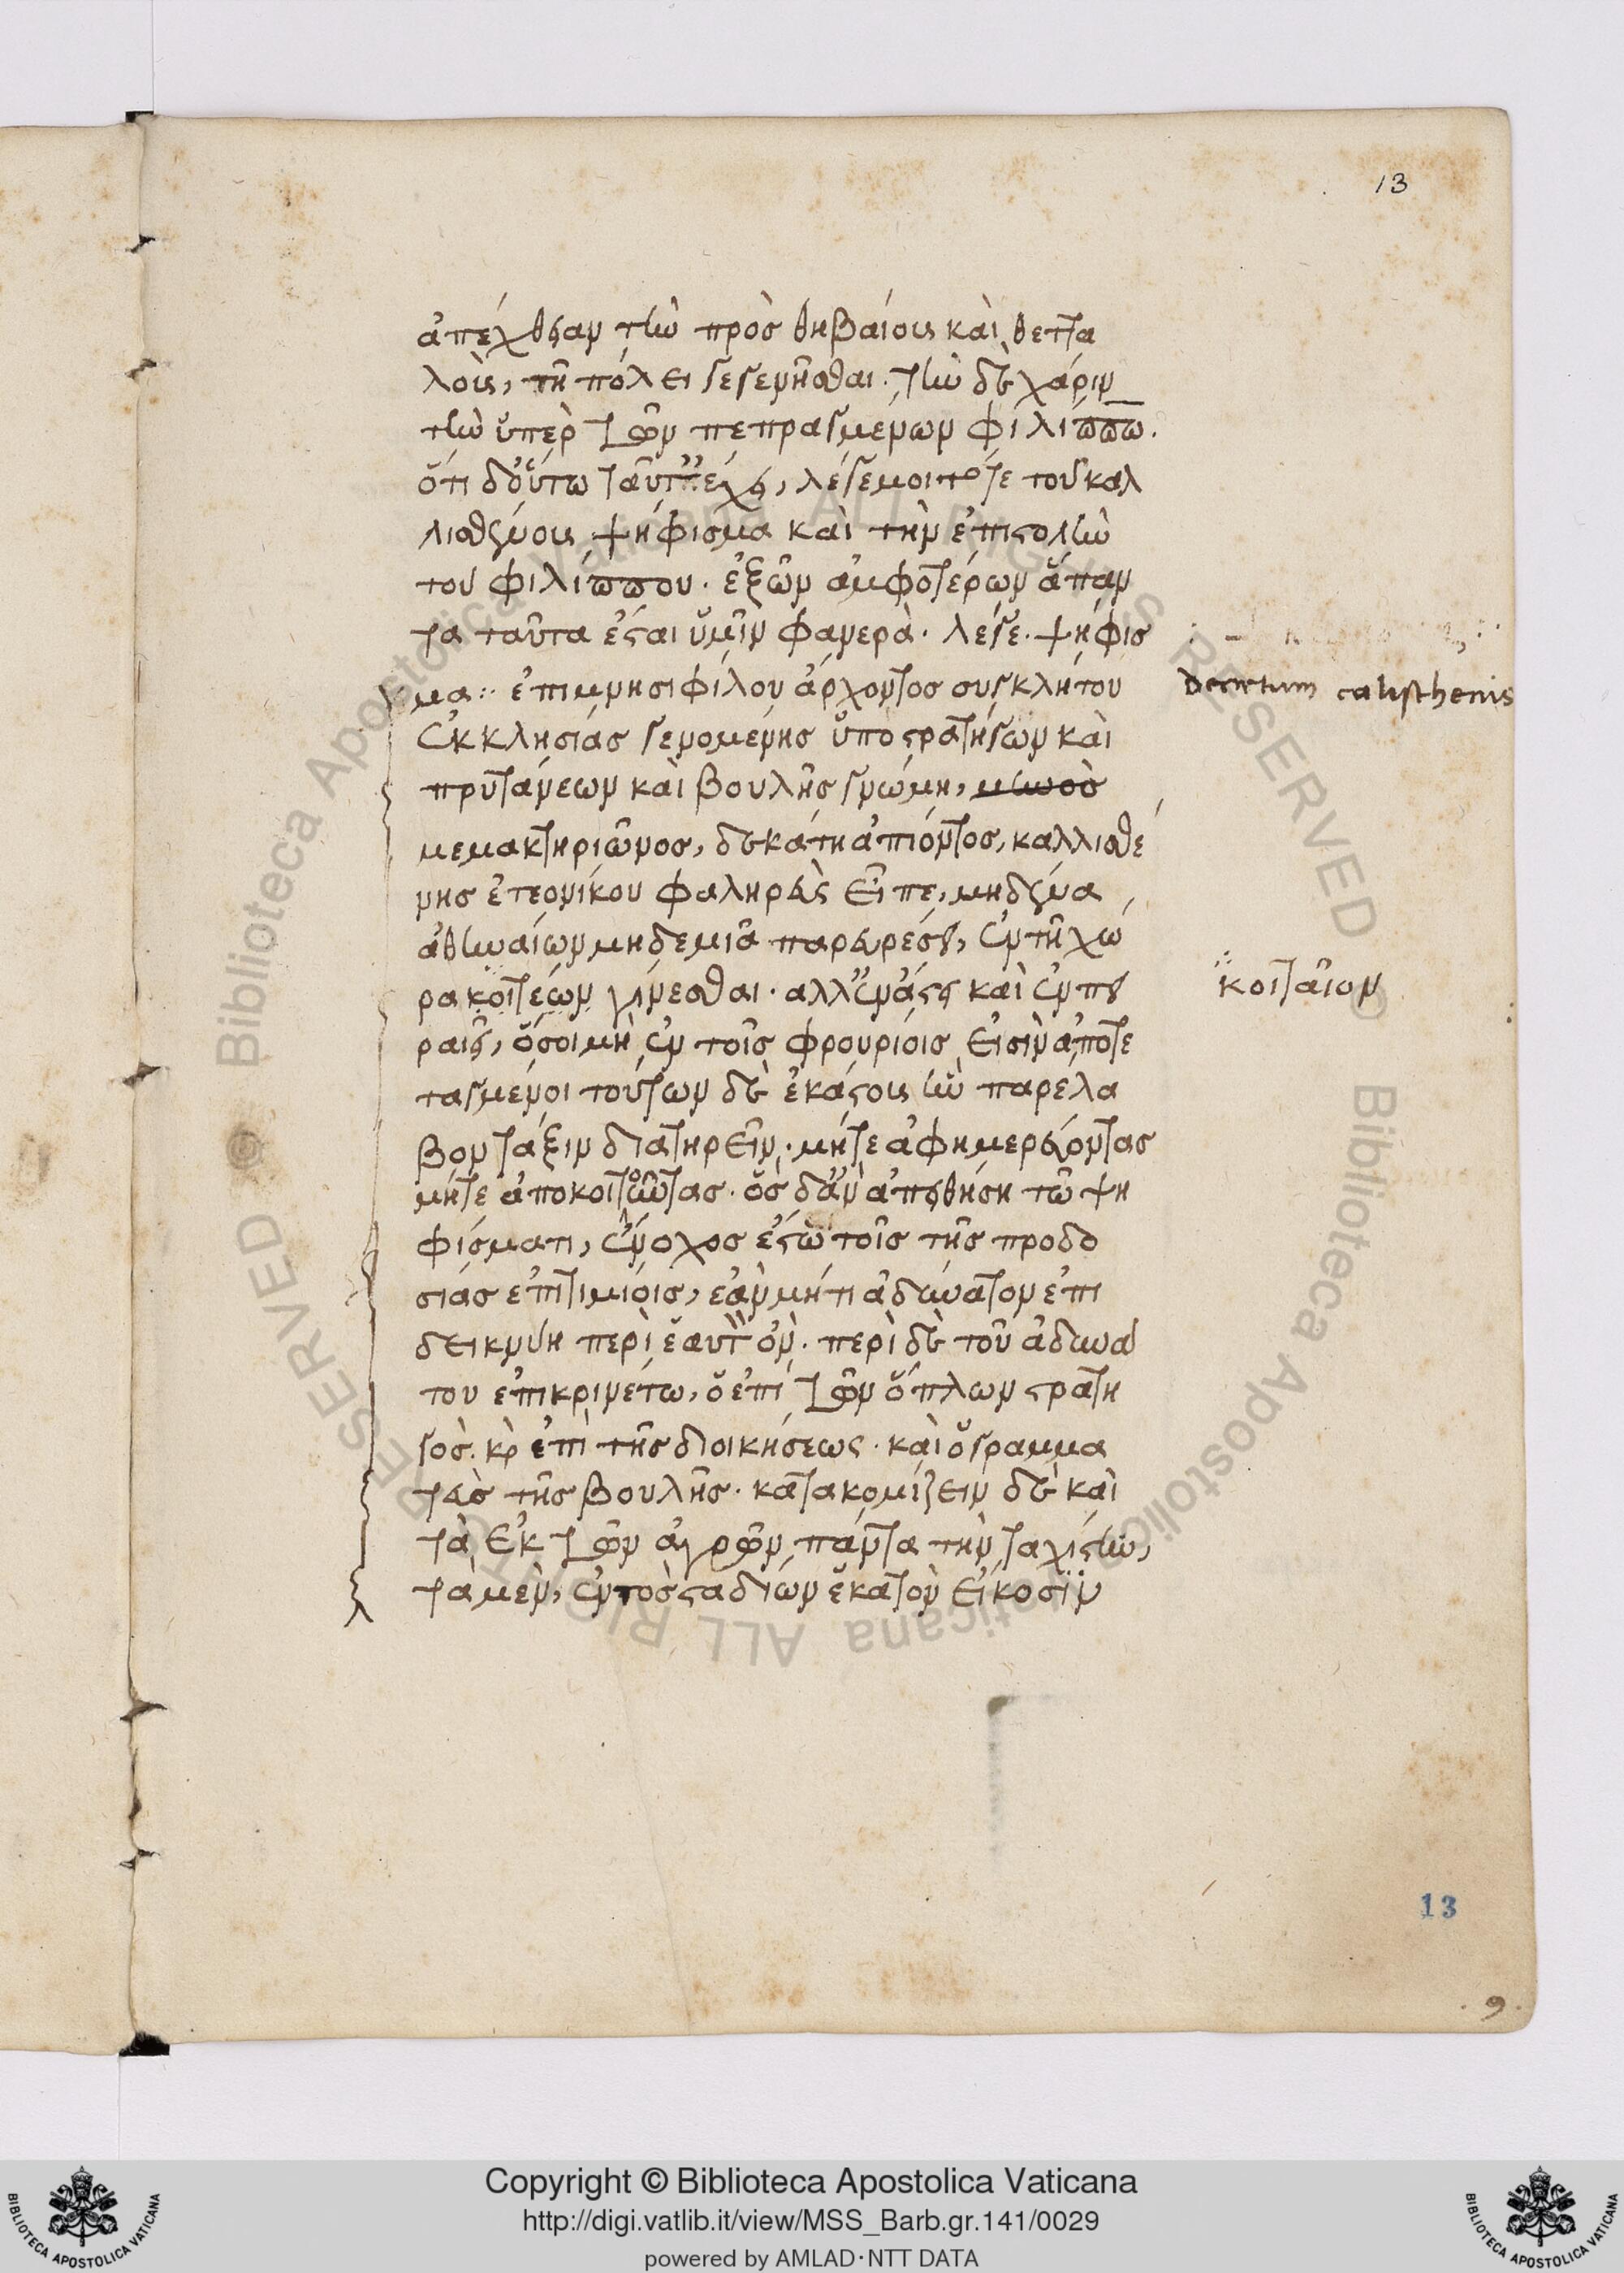 13
ἀπέχθειαν τὴν πρὸς θηβαίους καὶ θεττα
λοὺς, τῆ πόλει γεγενῆσθαι. τὴν δὲ χάριν
τὴν ὑπὲρ τῶν πεπραγμένων φιλίππω.
ὅτι δ' οὕτω ταῦτ' ἔχει, λέγε μοι τό τε τοῦ καλ
λισθένους ψήφισμα καὶ τὴν ἐπιστολὴν
του φιλίππου. ἐξ ὧν ἀμφοτέρων ἅπαν
τα ταῦτα ἔσται ὑμῖν φανερὰ. λέγε. ψήφισ
μα :: ἐπι μνησιφίλου ἄρχοντος συγκλήτου
decretum calisthenis
ἐκκλησίας γενομένης ὑπο στρατήγων καὶ
πρυτάνεων καὶ βουλῆς γνώμη, μηνὸς
μεμακτηριῶνος, δεκάτη ἀπιόντος, καλλισθέ
νης ἐτεονίκου φαληρεὺς εἶπε, μηδένα
ἀθηναίων μηδεμιᾶ παρευρέσει, ἐν τῆ χώ
ρα κοιτέων γίνεσθαι. αλλ' ἐν ἄστει καὶ ἐν πει
κοιταῖον
ραιεῖ, ὅσοι μὴ ἐν τοῖς φρουρίοις εἰσὶν ἀποτε
ταγμένοι τούτων δὲ ἑκάστους ἣν παρέλα
βον τάξιν διατηρεῖν. μήτε ἀφημερεύοντας
μήτε ἀποκοιτοῦντας. ὃς δ' ἂν ἀπειθήση τῶ ψη
φίσματι, ἔνοχος ἔστω τοῖς τῆς προδο
σίας ἐπιτιμίοις, ἐὰν μή τι ἀδύνατον ἐπι
δεικνύη περὶ ἑαυτ' ὂν. περὶ δὲ τοῦ ἀδυνά
του ἐπικρινέτω, ὁ ἐπὶ τῶν ὅπλων στρατη
γὸς. κὸ ἐπὶ τῆς διοικήσεως. καὶ ὁ γραμμα
τεὺς τῆς βουλῆς. κατακομίζειν δὲ καὶ
τὰ ἐκ τῶν ἀγρῶν πάντα τὴν ταχίστην,
τὰ μὲν, ἐντὸς σταδίων ἑκατὸν εἴκοσιν
13
9
Copyright © Biblioteca Apostolica Vaticana
http://digi.vatlib.it/view/MSS_Barb.gr.141/0029
powered by AMLAD·NTT DATA
BIBLIOTECA APOSTOLICA VATICANA
BIBLIOTECA APOSTOLICA VATICANA